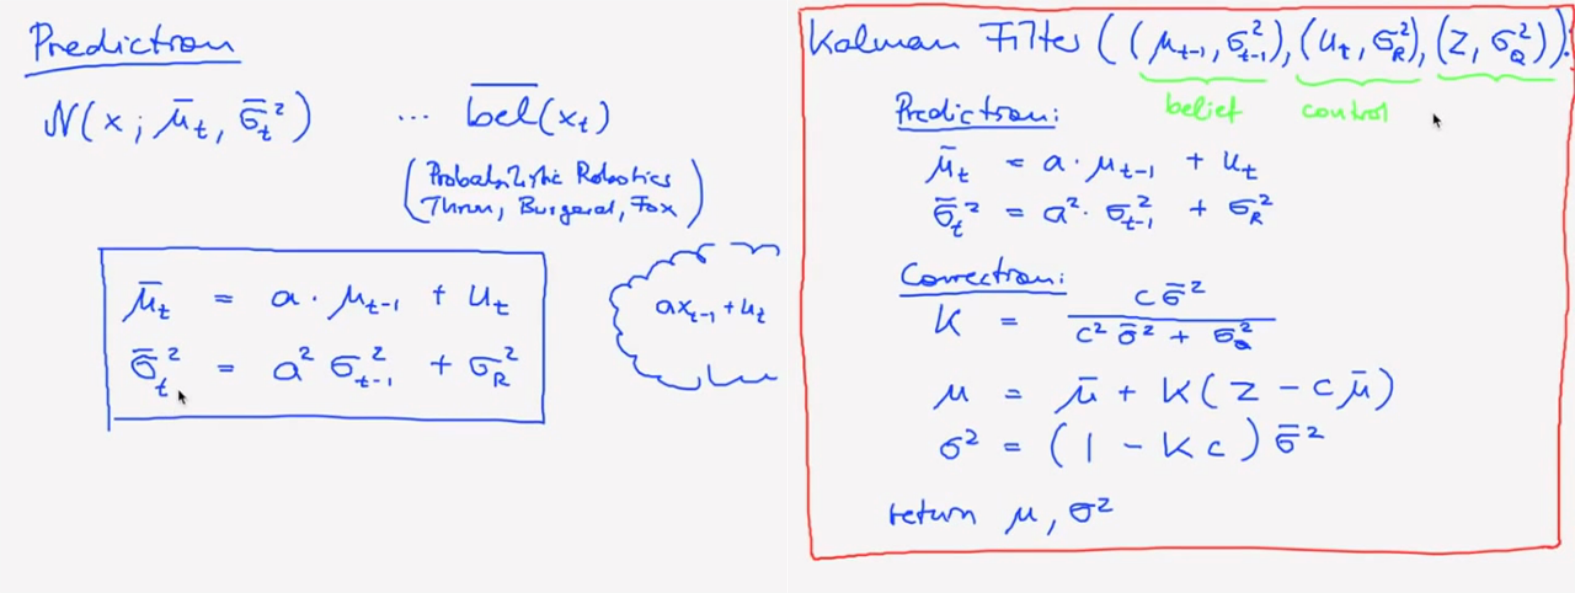 Prediction
N(x; μ̄_t, σ̄_t²) ... \overline{bel}(x_t)
(Probabilistic Robotics
Thrun, Burgard, Fox)
μ̄_t = a · μ_{t-1} + u_t
σ̄_t² = a² σ_{t-1}² + σ_R²
ax_{t-1} + u_t
Kalman Filter ((μ_{t-1}, σ_{t-1}²), (u_t, σ_R²), (z, σ_Q²)):
belief control
Prediction:
μ̄_t = a · μ_{t-1} + u_t
σ̄_t² = a² · σ_{t-1}² + σ_R²
Correction:
K = \frac{c σ̄²}{c² σ̄² + σ_Q²}
μ = μ̄ + K(z - c μ̄)
σ² = (1 - K c) σ̄²
return μ, σ²